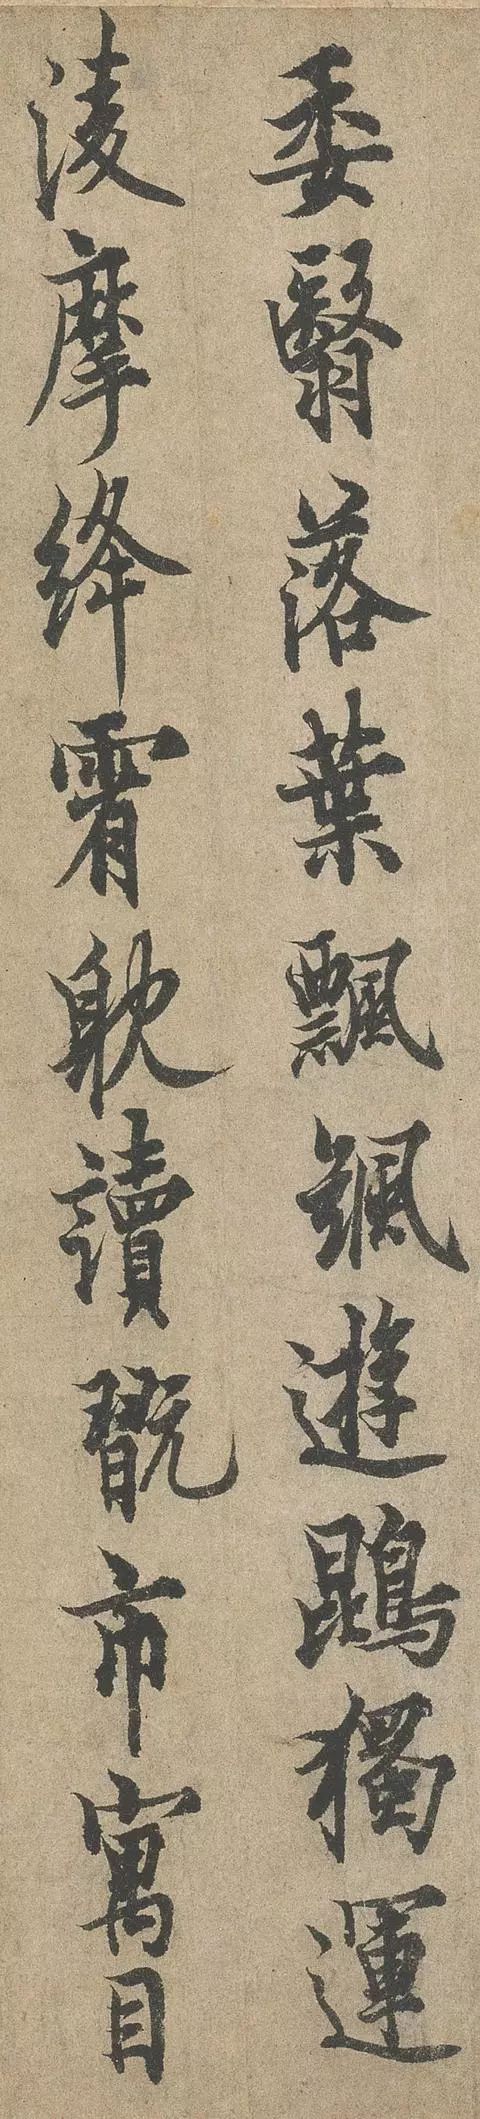 委翳落葉飄颻遊鵾獨運
淩摩絳霄耽讀翫市寓目